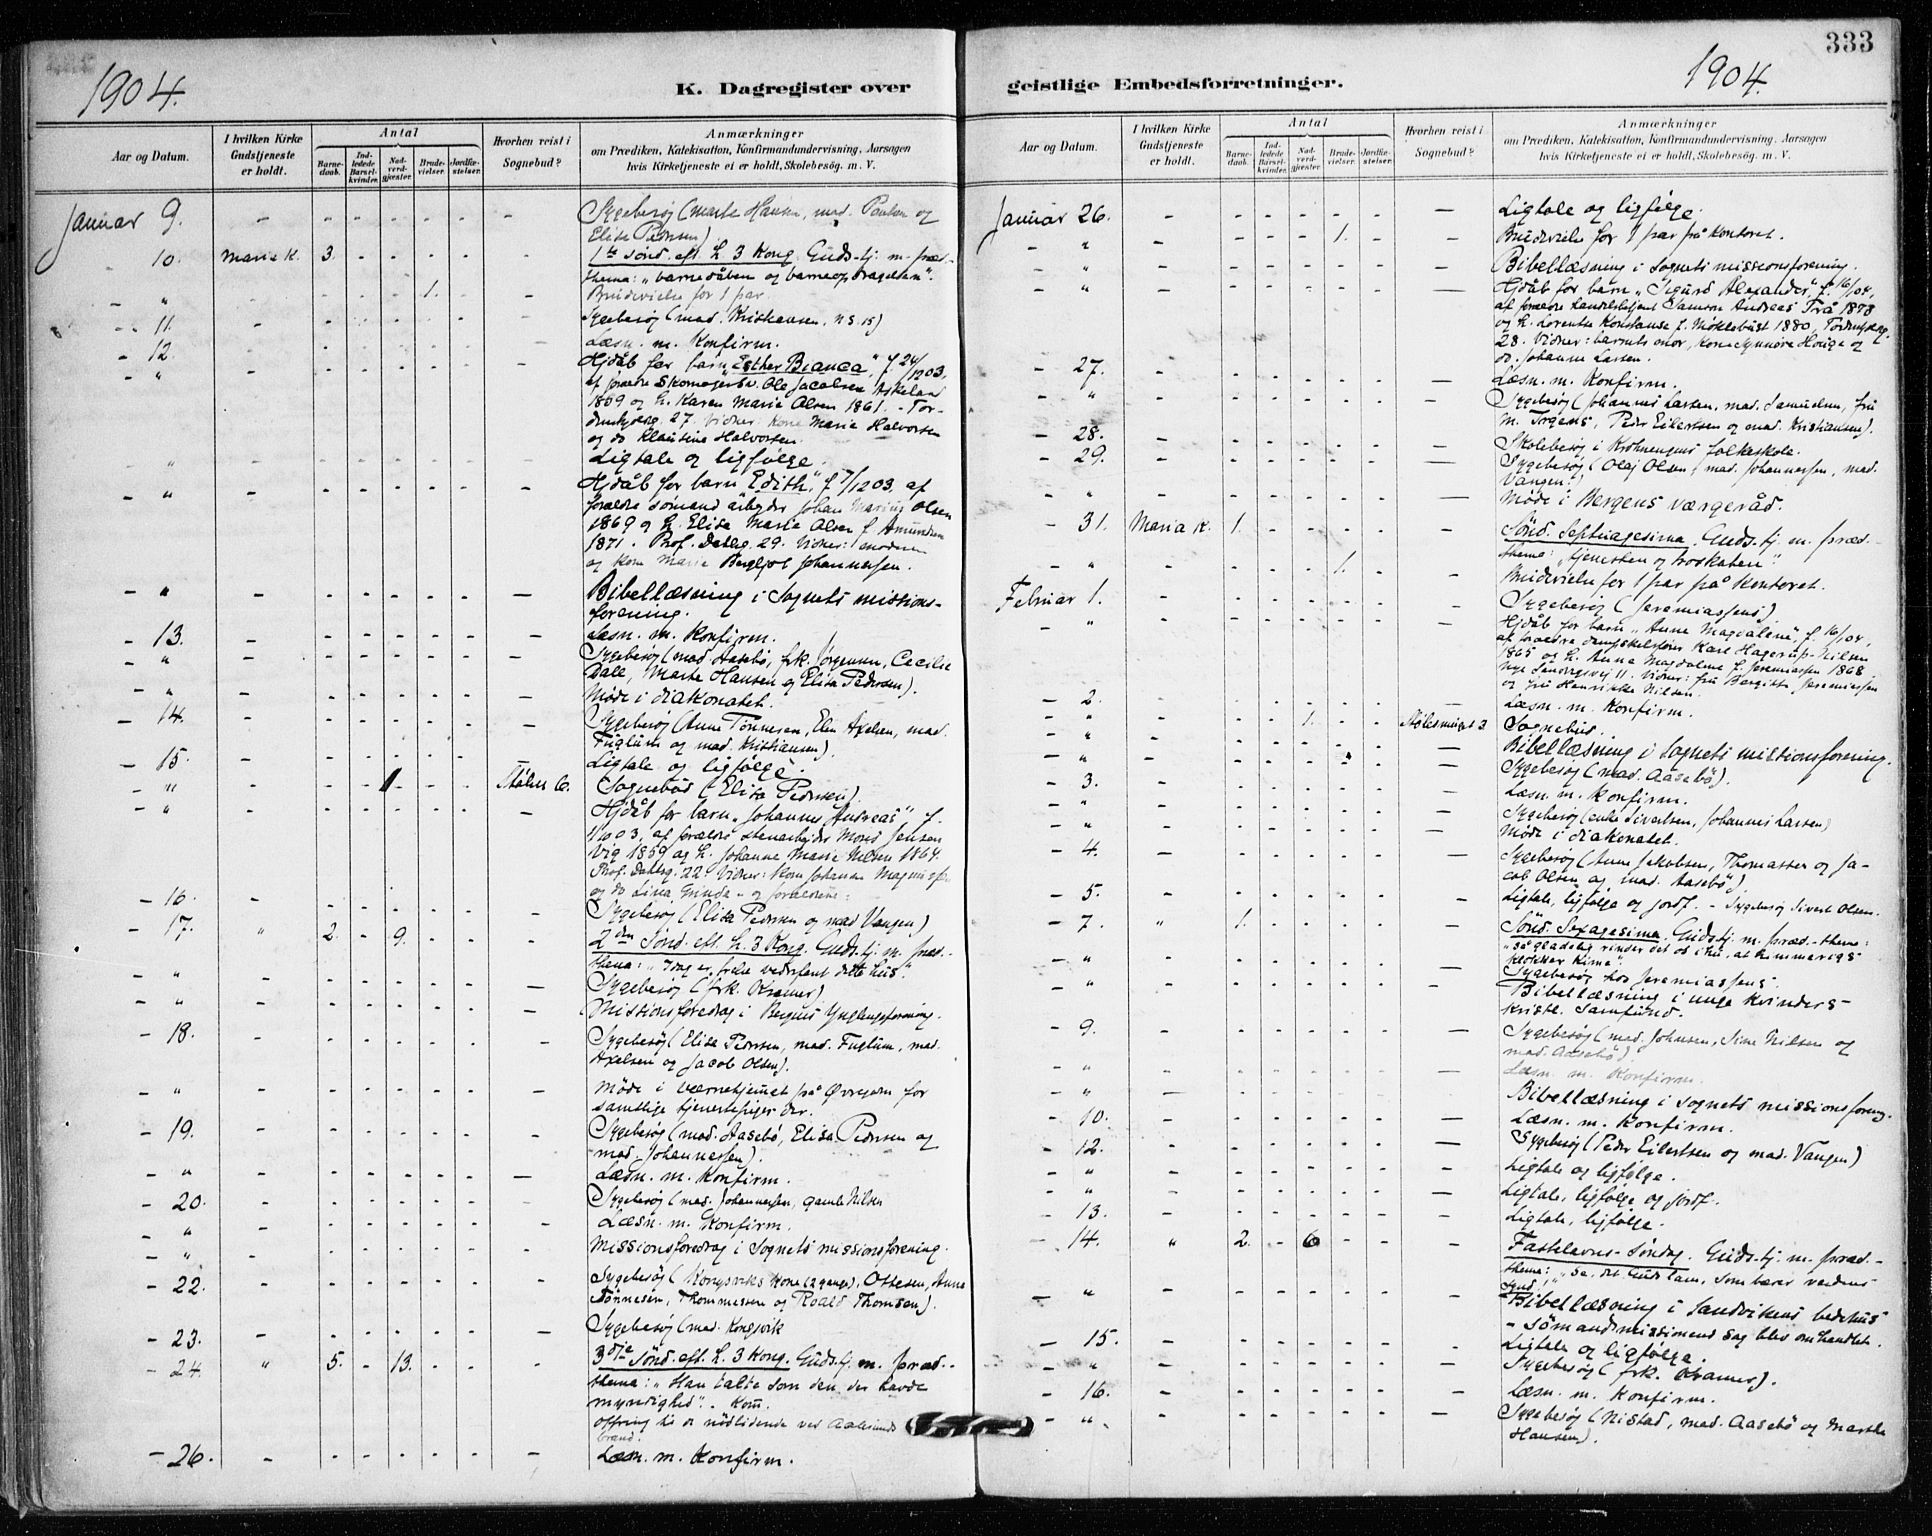 333
1904.
K. Dagregister over
Aar og Datum.
I hvilken Kirke Gudstjeneste er holdt.
Antal
Barnedaab.
Indledede Barselkvinder.
Nadverdgjester.
Brudevielser.
Jordfæstelser.
Hvorhen reist i Sognebud?
Anmærkninger
om Prædiken, Katekisation, Konfirmandundervisning, Aarsagen
hvis Kirketjeneste ei er holdt, Skolebesøg m. V.
Januar 9. - - - - - - - Sygebesøg (Marte Hansen, mad. Paulsen og
Elisa Pedersen).
- 10. Maria K. 3. - - - - 1ste sønd. eft. h. 3 Kong. Guds.tj. m. præd.-
thema: "barnedåben og barneopdragelsen".
- " - - - - 1. - - Brudevielse for 1 par.
- 11. - - - - - - - Sygebesøg (mad. Kristiansen, N.S. 15)
- 12. - - - - - - - Læsn. m. Konfirm.
- " - - - - - - - Hjdåb for barn "Esther Bianca", f. 24/1203,
af forældre Skomagersv. Ole Jacobsen Askeland
1869 og h. Karen Marie Olsen 1861. - Tor-
denskjoldsg. 27. Vidner: kone Marie Halvorsen
og do Klausine Halvorsen.
- " - - - - - - - Ligtale og ligfølge.
- " - - - - - - - Hjdåb for barn "Edith", f. 7/1203, af
forældre sømand arbejder Johan Marius Olsen
1869 og h. Elisa Marie Olsen f. Amundsen
1871. Prof. Dahlsg. 29. Vidner: moderen
og kone Marie Bergljot Johannessen.
- " - - - - - - - Bibellæsning i Sognets missions-
forening.
- 13. - - - - - - - Læsn. m. Konfirm.
- " - - - - - - - Sygebesøg (mad. Aasebö, frk. Jørgensen, Cecilie
Dale, Marte Hansen og Elisa Pedersen).
- " - - - - - - - Møde i diakonatet.
- 14. - - - - - - - Sygebesøg (Anne Tønnesen, Elen Axelsen, mad.
Fuglum og mad. Kristiansen).
- 15. - - - - - - - Ligtale og ligfølge.
- " - - - 1 - - Stølen 6. Sognebud (Elisa Pedersen).
- " - - - - - - - Hjdåb for barn "Johannes Andreas" f.
03, af forældre stenarbejder Mons Jensen
Vig 1859 og h. Johanne Marie Nilsen 1864.
Prof. Dahlsg. 22. Vidner: kone Johanne
og do Lina Grinde - og forældrene.
- 16. - - - - - - - Sygebesøg (Elisa Pedersen og mad Vangen)
- 17. " 2. - 9. - - - 2den Sønd. eft. h. 3 Kong. Guds.tj. m. præd.-
thema: "Idag er frelse vederfaret dette hus."
- " - - - - - - - Sygebesøg (frk. Kramer)
- " - - - - - - - Missionsforedrag i Bergens Ynglingeforening.
- 18. - - - - - - - Sygebesøg (Elisa Pedersen, mad. Fuglum, mad.
Axelsen og Jacob Olsen).
- " - - - - - - - Møde i værnehjemmet på Øvregaden for
samtlige tjenestepiger der.
- 19. - - - - - - - Sygebesøg (mad. Aasebö, Elisa Pedersen og
mad. Johannessen).
- " - - - - - - - Læsn. m. Konfirm.
- 20. - - - - - - - Sygebesøg (mad. Johannessen, gamle Nilsen
- " - - - - - - - Læsn. m. Konfirm.
- " - - - - - - - Missionsforedrag i Sognets missionsforening.
- 22. - - - - - - - Sygebesøg (Kongsviks kone (2 gange), Ottesen, Anna
Tønnesen, Thommesen og Roald Thomsen).
- 23. - - - - - - - Sygebesøg (mad. Kongsvik
- 24. " 5. - 13. - - - 3die Sønd. eft. h. 3 Kong. Guds.tj. m. præd.-
thema: "Han talte som den, der havde
myndighed". - Kom.
Ofring til de nødlidende ved Aalesunds
brand.
- 26. - - - - - - - Læsn. m. Konfirm.
geistlige Embedsforretninger.
1904.
Aar og Datum.
I hvilken Kirke Gudstjeneste er holdt.
Antal
Barnedaab.
Indledede Barselkvinder.
Nadverdgjester.
Brudevielser.
Jordfæstelser.
Hvorhen reist i Sognebud?
Anmærkninger
om Prædiken, Katekisation, Konfirmandundervisning, Aarsagen
hvis Kirketjeneste ei er holdt, Skolebesøg m. V.
Januar 26. - - - - - - - Ligtale og ligfølge.
- " - - - - 1. - - Brudevielse for 1 par på kontoret.
- " - - - - - - - Bibellæsning i Sognets missionsforening.
- " - - - - - - - Hjdåb for barn "Sigurd Alexander", f. 16/1 04,
af forældre handelsbetjent Samson Andreas Trå 1878
og h. Lorentse Konstanse f. Møklebust 1880, Tordenskjoldsg.
28. Vidner: barnets mor, kone Synnøve Hauge og
do. Johanne Larsen.
- 27. - - - - - - - Læsn. m. Konfirm.
- " - - - - - - - Sygebesøg (Johannes Larsen, mad. Samuelsen, fru
M. Irgens, Peder Eilertsen og mad. Kristiansen).
- 28. - - - - - - - Skolebesøg i Krohnengens folkeskole.
- 29. - - - - - - - Sygebesøg (Olaj Olsen, mad. Johannessen, mad.
Vangen)
- " - - - - - - - Møde i Bergens værgeråd.
- 31. Maria K. 1. - - - - - Sønd. Septuagesima. Guds.tj. m. præd.-
thema: "tjenesten og troskaben".
- " - - - - 1. - - Brudevielse for 1 par på kontoret.
Februar 1. - - - - - - - Sygebesøg (Jeremiassens)
- " - - - - - - - Hjdåb for barn "Anne Magdalene", f. 16/1 04,
af forældre dampskibsfører Karl Hagerup-Nilsen
1865 og h. Anna Magdalene f. Jeremiassen 1868
nye Sandviksvej 11. Vidner: fru Bergitte Jeremiassen
og fru Henrikke Nilsen.
- 2. - - - - - - - Læsn. m. Konfirm.
- " - - - 1. - - Stølesmuget 3 Sognebud.
- " - - - - - - - Bibellæsning i Sognets missionsforening.
- " - - - - - - - Sygebesøg (mad. Aasebö).
- 3. - - - - - - - Læsn. m. Konfirm.
- " - - - - - - - Sygebesøg (enke Sivertsen, Johannes Larsen)
- " - - - - - - - Møde i diakonatet.
- 4. - - - - - - - Sygebesøg (Anne Jakobsen, Thomassen og Ja-
cob Olsen og mad. Aasebö).
- 5. - - - - - - - Ligtale, ligfølge og jordf. - Sygebesøg Sivert Olsen.
- 7. " 1. - - - - - Sønd. Sexagesima. Guds.tj. m. præd.-thema:
"så gladelig rinder det os i hu, at himmeriges
klokker kime".
- " - - - - - - - Sygebesøg hos Jeremiassens.
- " - - - - - - - Bibellæsning i unge kvinders
kristl. samfund.
- 9. - - - - - - - Sygebesøg (mad. Johnsen, Sine Nilsen og
mad. Aasebö)
- " - - - - - - - Læsn. m. Konfirm.
- " - - - - - - - Bibellæsning i Sognets missionsforening.
- 10. - - - - - - - Læsn. m. Konfirm.
- 12. - - - - - - - Sygebesøg (Peder Eilertsen og mad. Vangen)
- " - - - - - - - Ligtale og ligfølge.
- " - - - - - - - Ligtale, ligfølge og jordf.
- 13. - - - - - - - Ligtale, ligfølge.
- 14. " 2. - 6 - - - Fastelavns-Søndag. Guds.tj. m. præd.-
thema: "Se, det Guds lam, som bærer verdens
synd."
- " - - - - - - - Bibellæsning i Sandvikens bedehus
- sømandsmissionens sag blev omhandlet.
- 15. - - - - - - - Ligtale og ligfølge.
- " - - - - - - - Sygebesøg (frk. Kramer).
- 16. - - - - - - - Læsn. m. Konfirm.
- " - - - - - - - Sygebesøg (Nistad, mad. Aasebö og Marthe
Hansen).